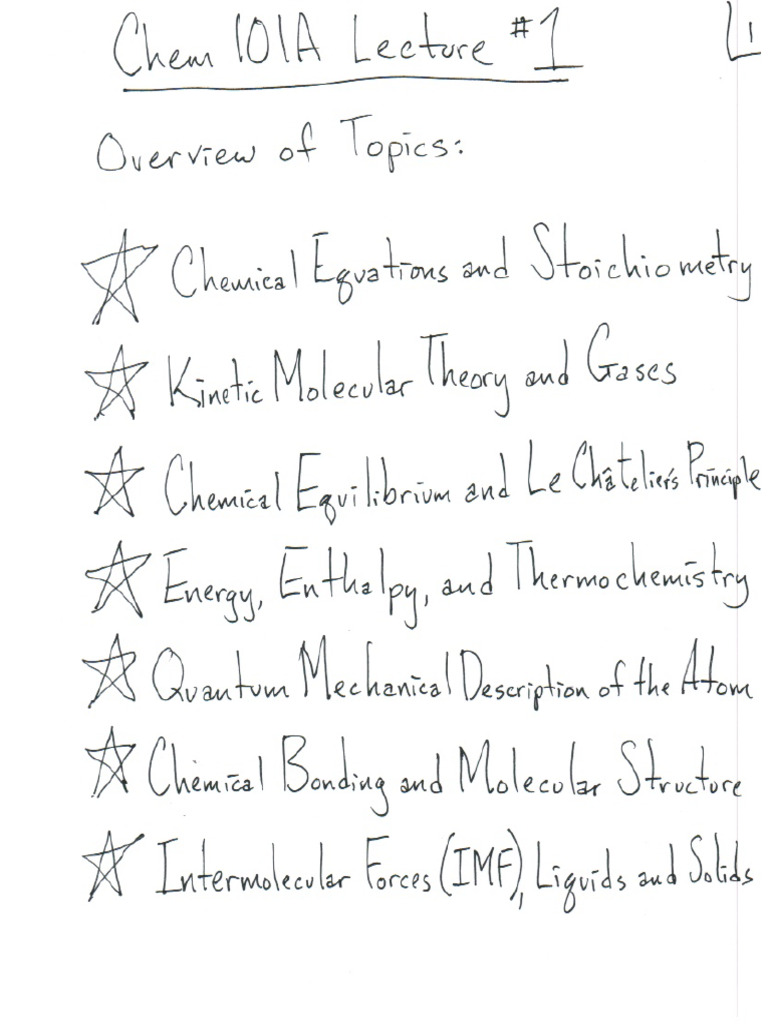 Chem 101A Lecture #1
L1
Overview of Topics:
Chemical Equations and Stoichiometry
Kinetic Molecular Theory and Gases
Chemical Equilibrium and Le Châtelier's Principle
Energy, Enthalpy, and Thermochemistry
Quantum Mechanical Description of the Atom
Chemical Bonding and Molecular Structure
Intermolecular Forces (IMF), Liquids and Solids